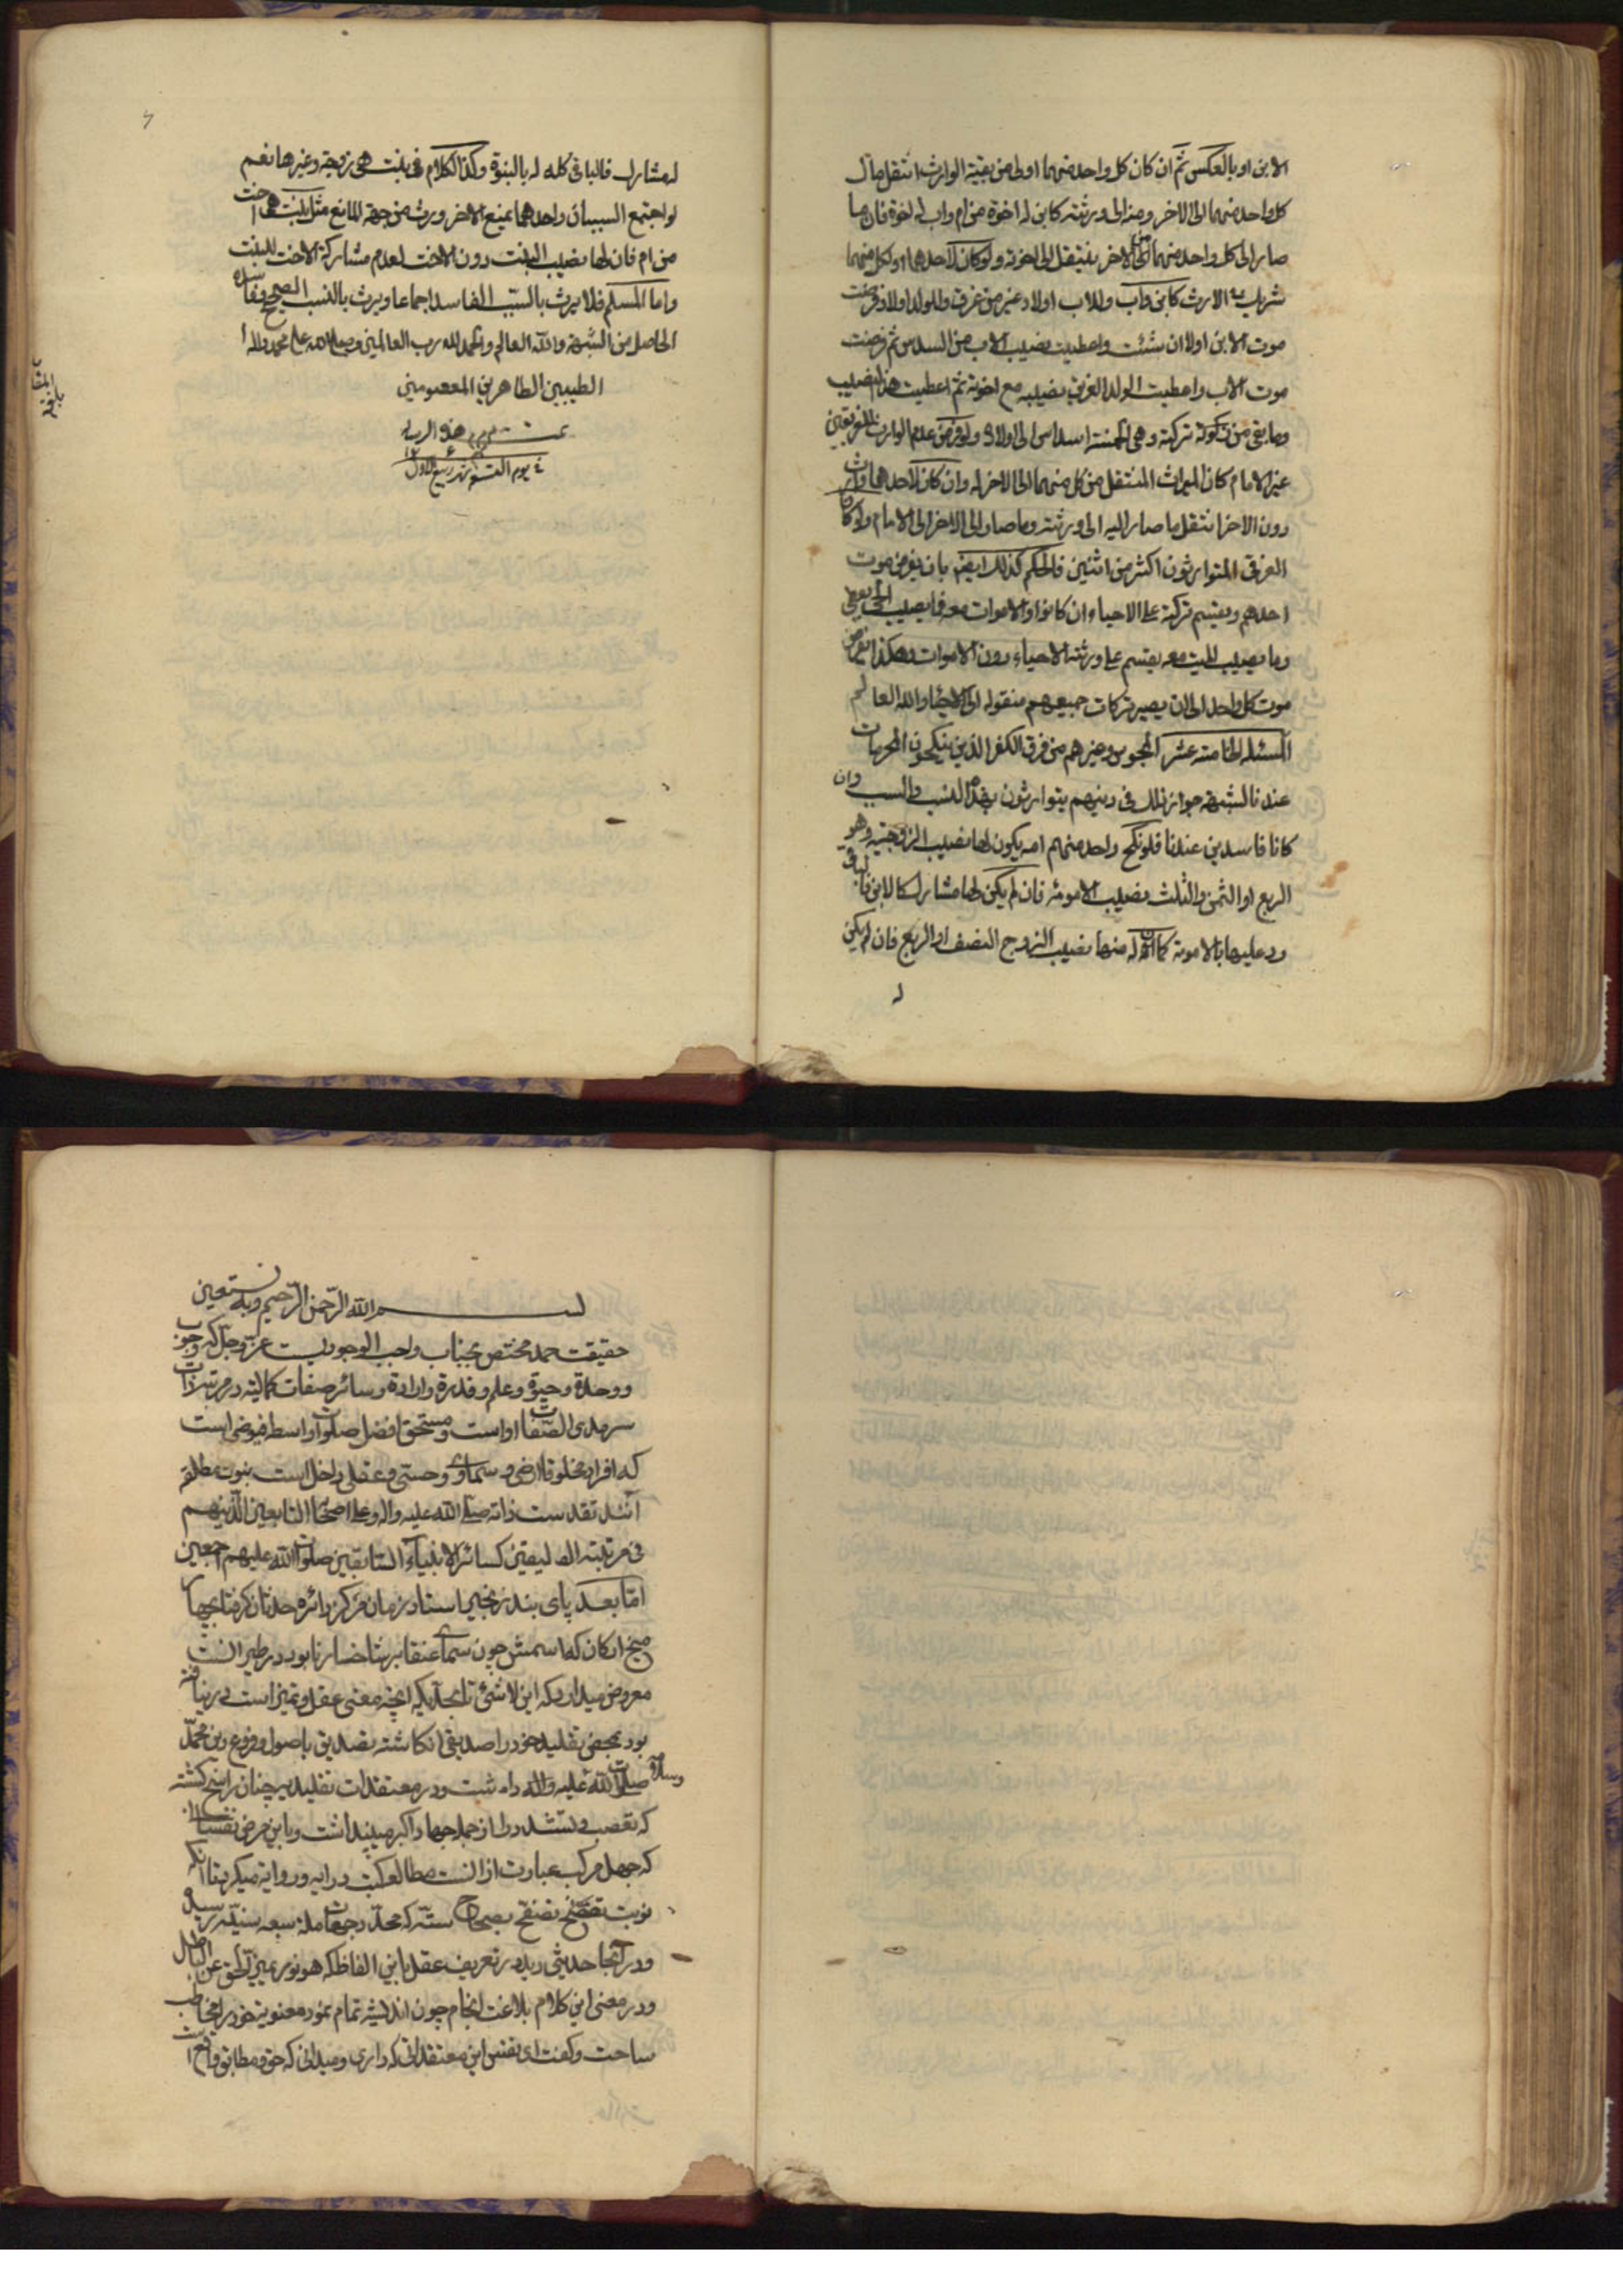 الابن او بالعكس ثم ان كان كل واحد منهما اولى من بقية الوارث انتقل مال
كل واحد منهما الى الاخر ومنه الى ورثته كابن له اخوة من ام واب له اخوة فان ما
صار الى كل واحد منهما من الاخر ينتقل الى اخوته ولو كان لاحدهما او لكل منهما
شريك في الارث كابن واب وللاب اولاد غير من غرق وللولد اولاد فرضت
موت الابن اولا ان شئت واعطيت نصيب الاب من السدس ثم فرضت
موت الاب واعطيت الولد الغريق نصيبه مع اخوته ثم اعطيت هذا النصيب
وما بقى من تركته وهى الخمسة اسداس الى اولاده ولو فرض عدم الوارث للغريقين
غير الامام كان الميراث المنتقل من كل منهما الى الاخر له وان كان لاحدهما وارث
دون الاخر انتقل ما صار اليه الى ورثته وما صار الى الاخر الى الامام ولو كان
الغرقى المتوارثون اكثر من اثنين فالحكم كذلك ايضا بان يفرض موت
احدهم ويقسم تركته على الاحياء ان كانوا والاموات معه فما يصيب الحى يعطى
وما يصيب الميت معه يقسم على ورثته الاحياء دون الاموات وهكذا يفرض
موت كل واحد الى ان يصير تركات جميعهم منقوله الى الاحياء والله العالم
المسئله الخامسة عشر المجوس وغيرهم من فرق الكفر الذين ينكحون المحرمات
عندنا لشبهة جواز ذلك فى دينهم يتوارثون بهذا النسب والسبب وان
كانا فاسدين عندنا فلو نكح واحد منهم امه يكون لها نصيب الزوجية وهو
الربع او الثمن والثلث نصيب الامومة فان لم يكن لها مشارك كالابن فالباقى
رد عليها بالامومة كما ان له منها نصيب الزوج النصف او الربع فان لم يكن
له
له مشارك فالباقى كله له بالبنوة وكذا الكلام فى بنت هى زوجة وغيرها نعم
لو اجتمع السببان واحدهما يمنع الاخر ورث من جهة المانع مثل بنت هى اخت
من ام فان لها نصيب البنت دون الاخت لعدم مشاركة الاخت للبنت
واما المسلم فلا يرث بالسبب الفاسد اجماعا ويرث بالنسب الصحيح وفاسده
الحاصل من الشبهة والله العالم والحمد لله رب العالمين وصلى الله على محمد واله
الطيبين الطاهرين المعصومين
تمت هذه الرساله
بسم الله الرحمن الرحيم وبه نستعين
حقيقت حمد مختص بجناب واجب الوجوديست عز وجل كه وجوب
ووحدة وحيوة وعلم وقدرة وارادة وسائر صفات كماليه در مرتبه ذات
سرمدى الصفات اواست ومستحق افضل صلوات واسطه فيوضى است
كه افراد مخلوقات ارضى وسماوى وحسى وعقلى داخل است بنبوت مطلقه
تقدست ذاته صلى الله عليه واله وعلى اصحابه التابعين الذينهم
فى مرتبة كسائر الانبياء السابقين صلوات الله عليهم اجمعين
اما بعد پاى بند زنجير استاد زمان مركز دائره حدثان گرفتار چهار
ميخ امكان كه اسمش چون سماى عنقا نابود در طيرانست
معروض ميدارد كه اين لاشئ تا بحديكه معنى عقل وتميز است دريافته
بود بمحض تقليد خود را صديقى انكاشته تصديق باصول وفروع دين محمد
صلوات الله عليه واله وسلامه داشت ودر معتقدات تقليديه چنان راسخ كشته
كه تعصب وتشدد را از جمله جهاد اكبر ميپنداشت وباين مرض نفسانى
كه جهل مركب عبارت از انست مطالعه كتب درايه وروايه ميكرد تا انكه
نوبت تصفح صحاح سته كه رسيد
ودر آنجا حديثى ديد در تعريف عقل باين الفاظ كه هو نور يميز الحق عن الباطل
ودر معنى اين كلام بلاغت انجام چون انديشه تمام نمود معنويه خود را مخاطب
ساخت وكفت اى نفس اين معتقداتى كه دارى وميدانى كه حق ومطابق واقع است